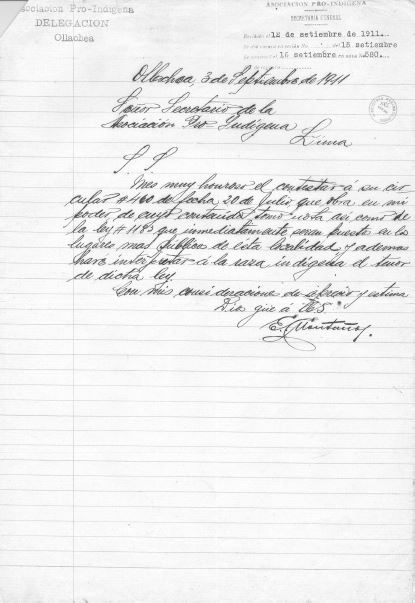 Asociacion Pro-Indigena
DELEGACION
Ollachea
ASOCIACION PRO-INDIGENA
SECRETARÍA GENERAL
Recibido el 12 de setiembre de 1911.
15 setiembre
16 setiembre
Ollachea, 3 de Septiembre de 1911
Señor Secretario de la
Asociación Pro Indígena
Lima
S. S
Mes muy honroso el contestar á su cir
cular #460 de fecha 20 de Julio que obra en mi
poder, de cuyo contenido tomo nota asi como de
la ley #1183 que inmediatamente seran puesta en lo
lugares mas publico de esta localidad y ademas
hare interpretar á la raza indigena el tenor
de dicha ley
Con mis consideracione de aprecio y estima
Dio gue á US
E. Montano